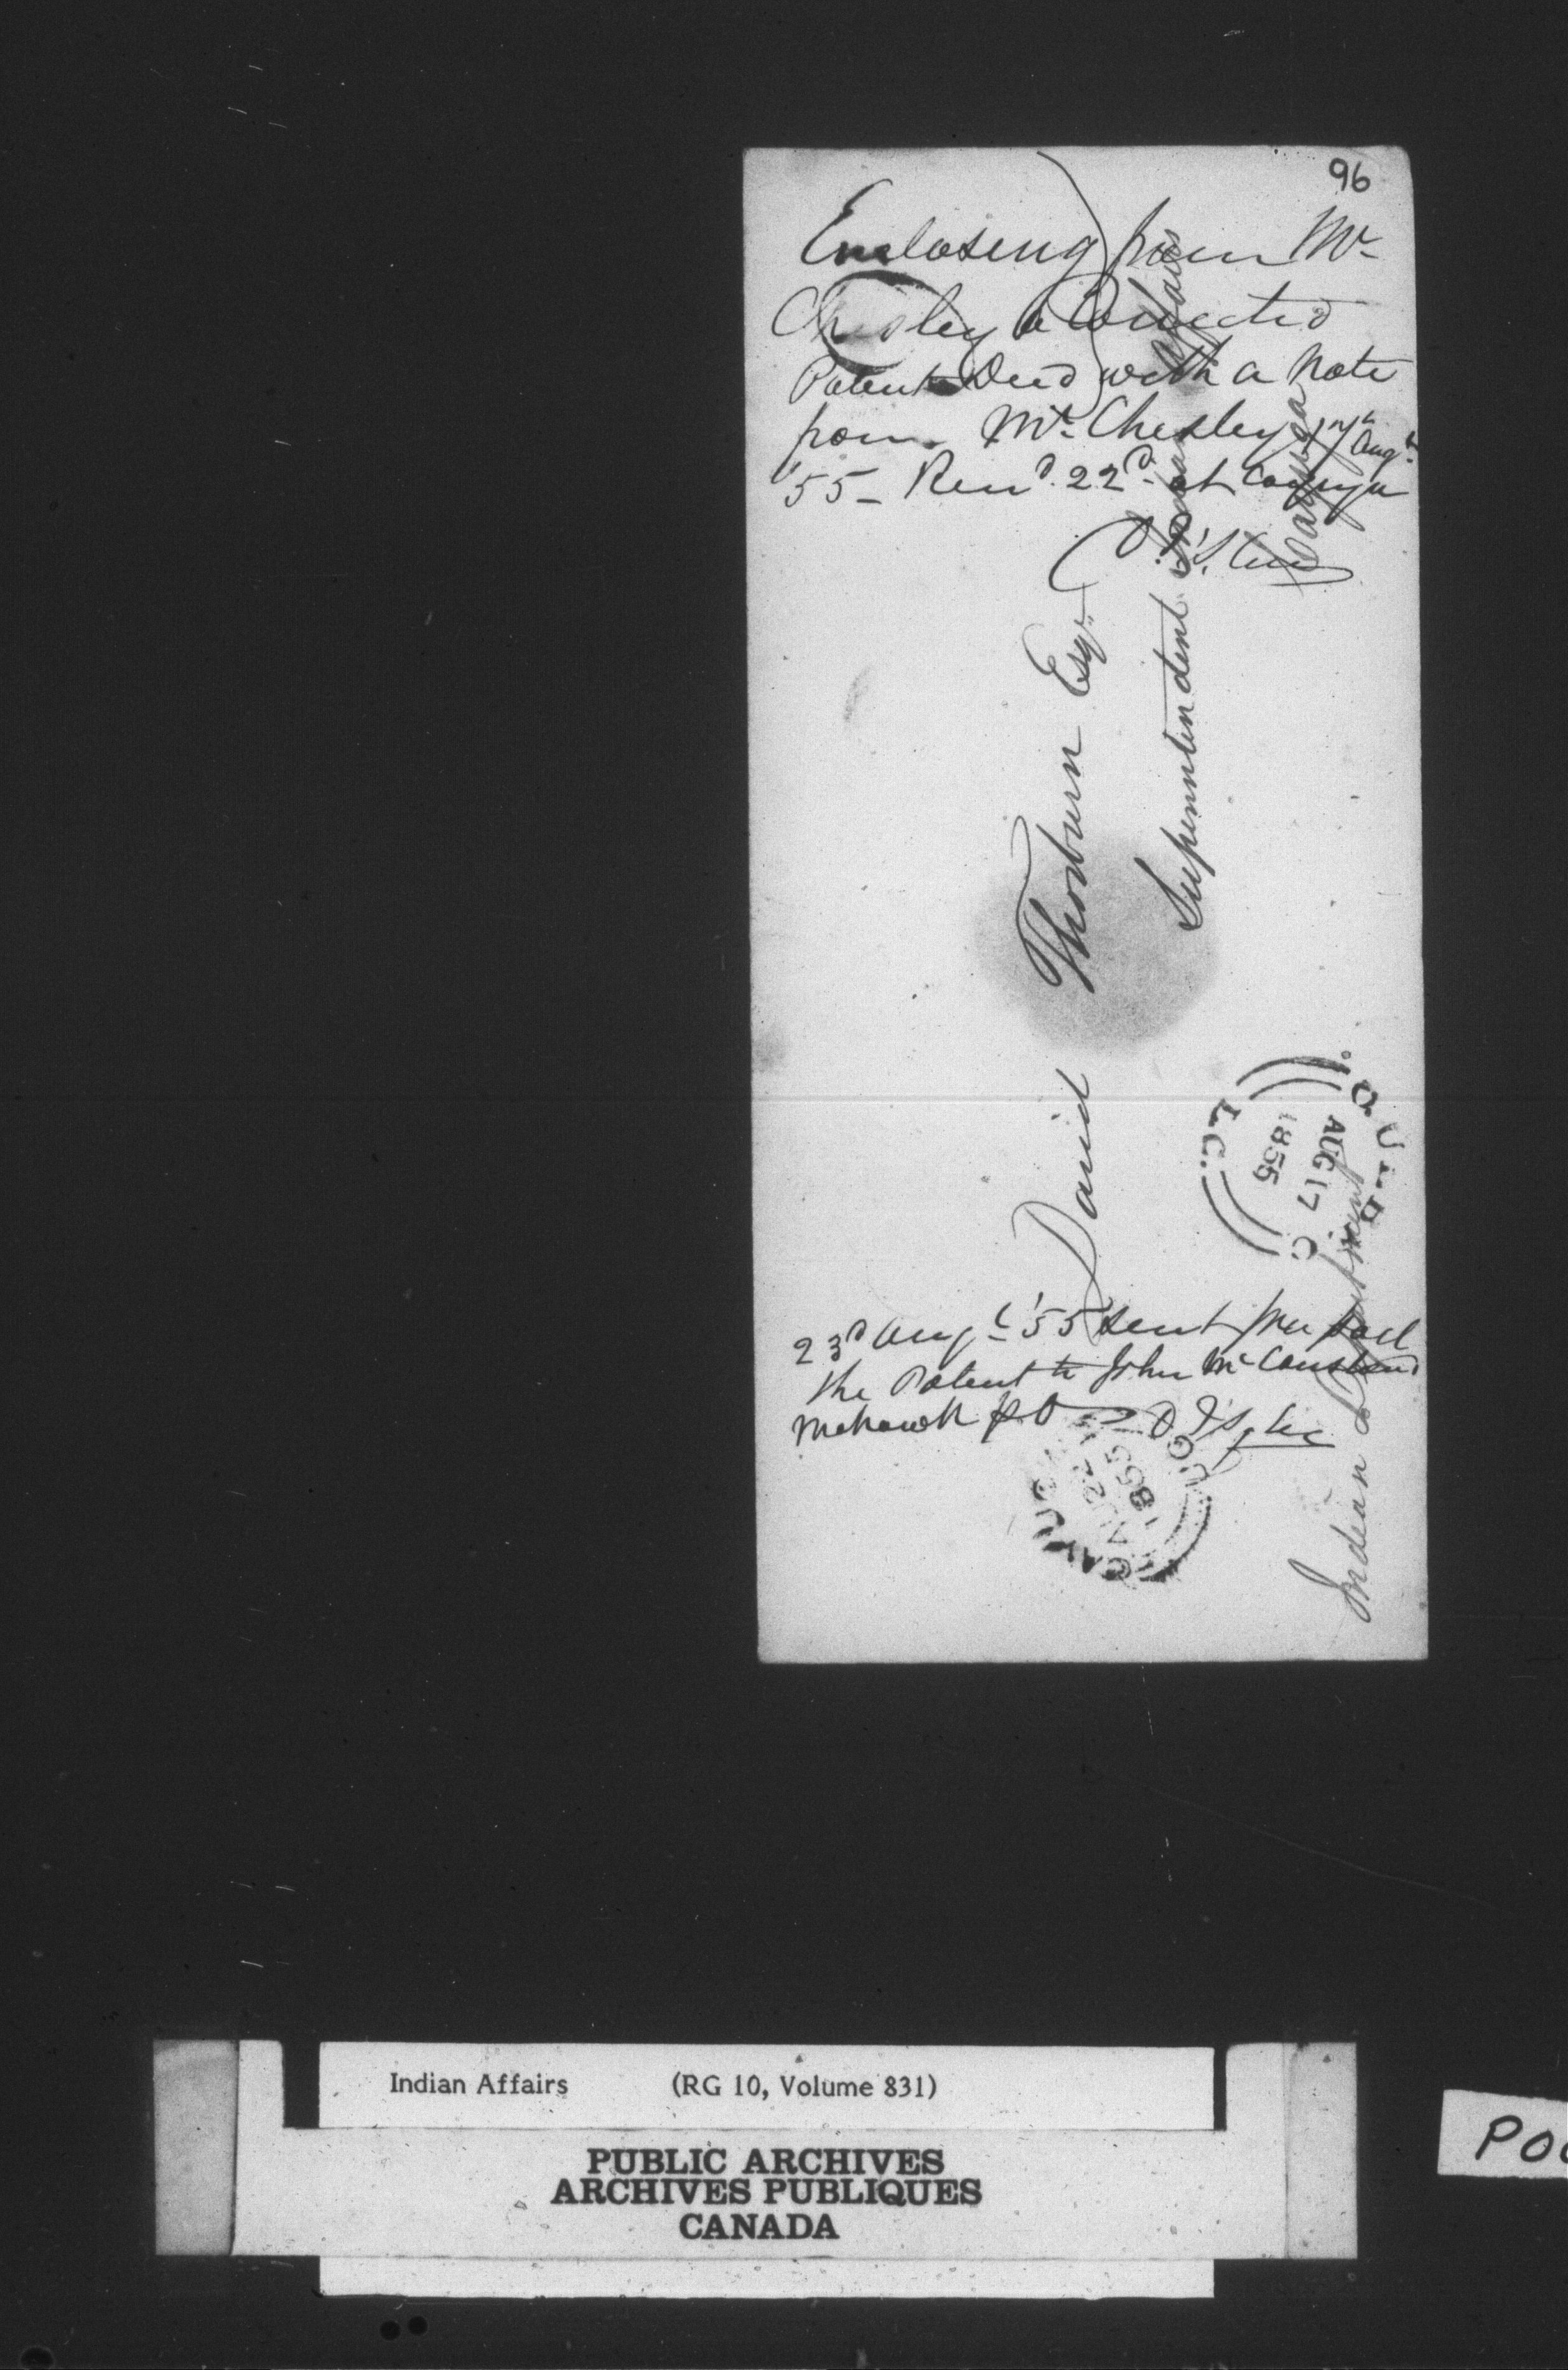 96
Enclosing from Mr
Chesley a Corrected
Patent Deed with a Note
from Mr Chesley 17th Augt
'55 - Recd 22d at Cayuga
David Thorburn Esqr
Superintendent Indian Affairs
Cayuga
Indian Department
AUG 17
1855
L.C.
23d Augt '55 sent per Mail
the Patent to John McCausland
Mohawk P.O.
CAYUGA
1855
Indian Affairs (RG 10, Volume 831)
PUBLIC ARCHIVES
ARCHIVES PUBLIQUES
CANADA